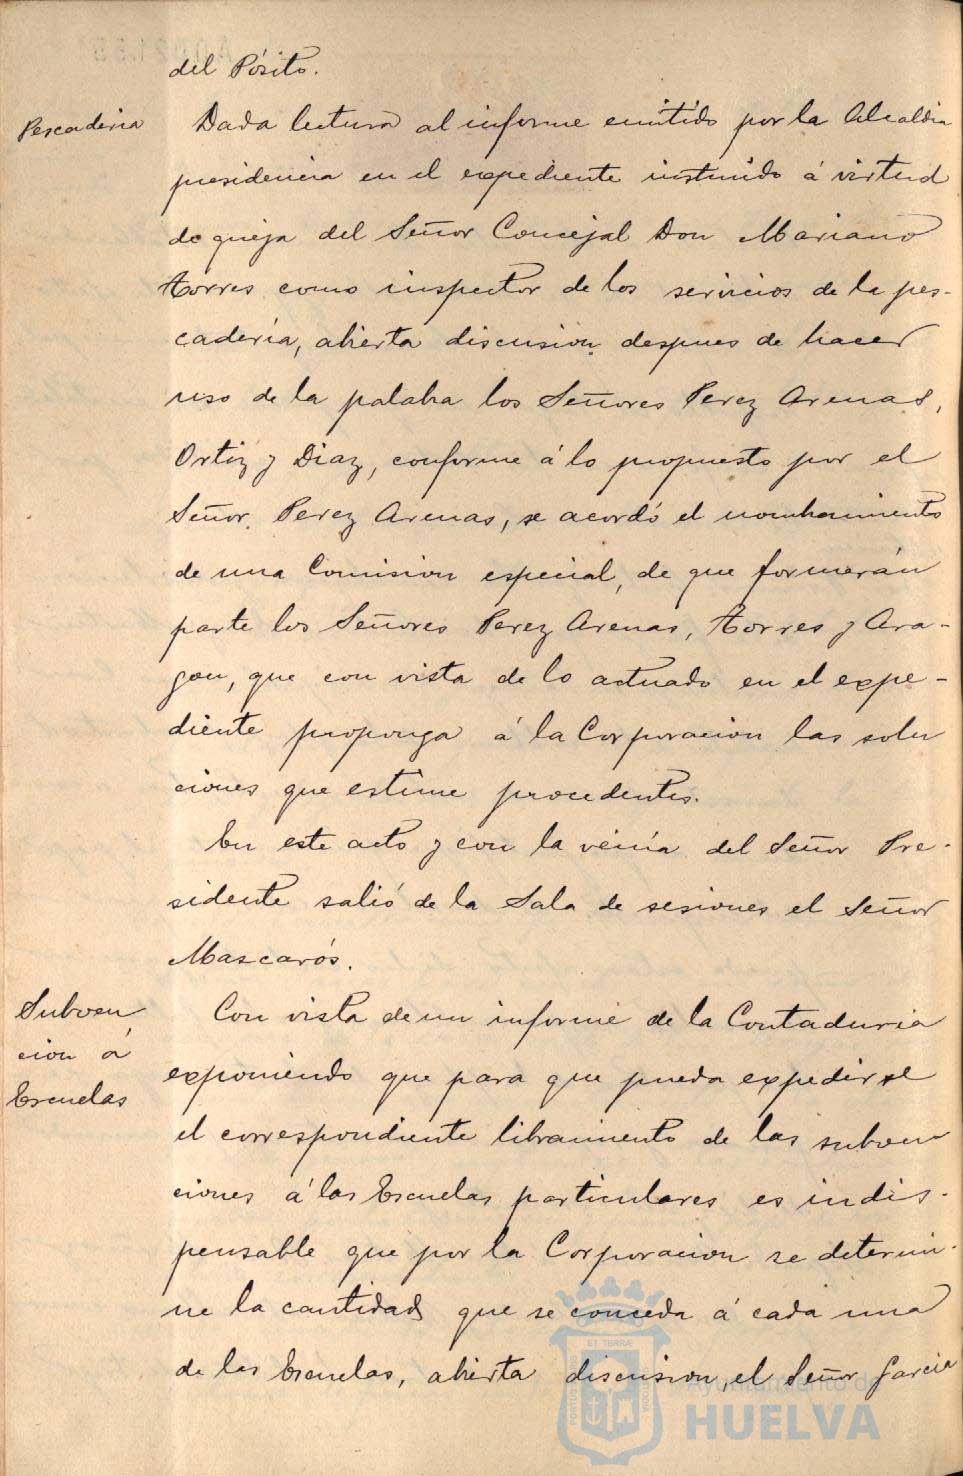 del Pósito.
Pescaderia
Dada lectura al informe emitido por la Alcaldia
presidencia en el expediente instruido á virtud
de queja del Señor Concejal Don Mariano
Torres como inspector de los servicios de la pes-
cadería, abierta discusion despues de hacer
uso de la palabra los Señores Perez Arenas,
Ortiz y Diaz, conforme á lo propuesto por el
Señor Perez Arenas, se acordó el nombramiento
de una Comision especial, de que formarán
parte los Señores Perez Arenas, Torres y Ara-
gon, que con vista de lo actuado en el expe-
diente proponga á la Corporacion las solu
ciones que estime procedentes.
En este acto y con la venia del Señor Pre-
sidente salió de la Sala de sesiones el Señor
Mascarós.
Subven
cion á
Escuelas
Con vista de un informe de la Contaduria
exponiendo que para que pueda expedirse
el correspondiente libramiento de las subven
ciones á las Escuelas particulares es indis-
pensable que por la Corporacion se determi-
ne la cantidad que se conceda á cada una
de las Escuelas, abierta discusion, el Señor Garcia
ET TERRAE
Ayuntamiento de
HUELVA